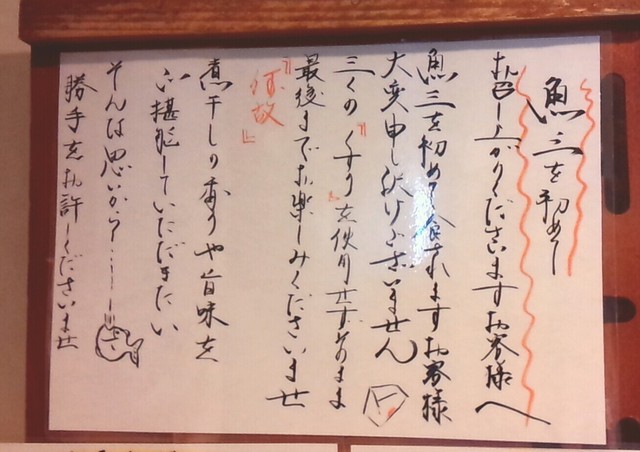 魚三を初めて
お召し上がりくださいますお客様へ
魚三を初めて食されますお客様
大変申し訳けございません
三くの『くすり』を使用せずそのまま
最後までお楽しみくださいませ
『何故』
煮干しの香りや旨味を
ご堪能していただきたい
そんな思いから・・・・・・
勝手をお許しくださいませ